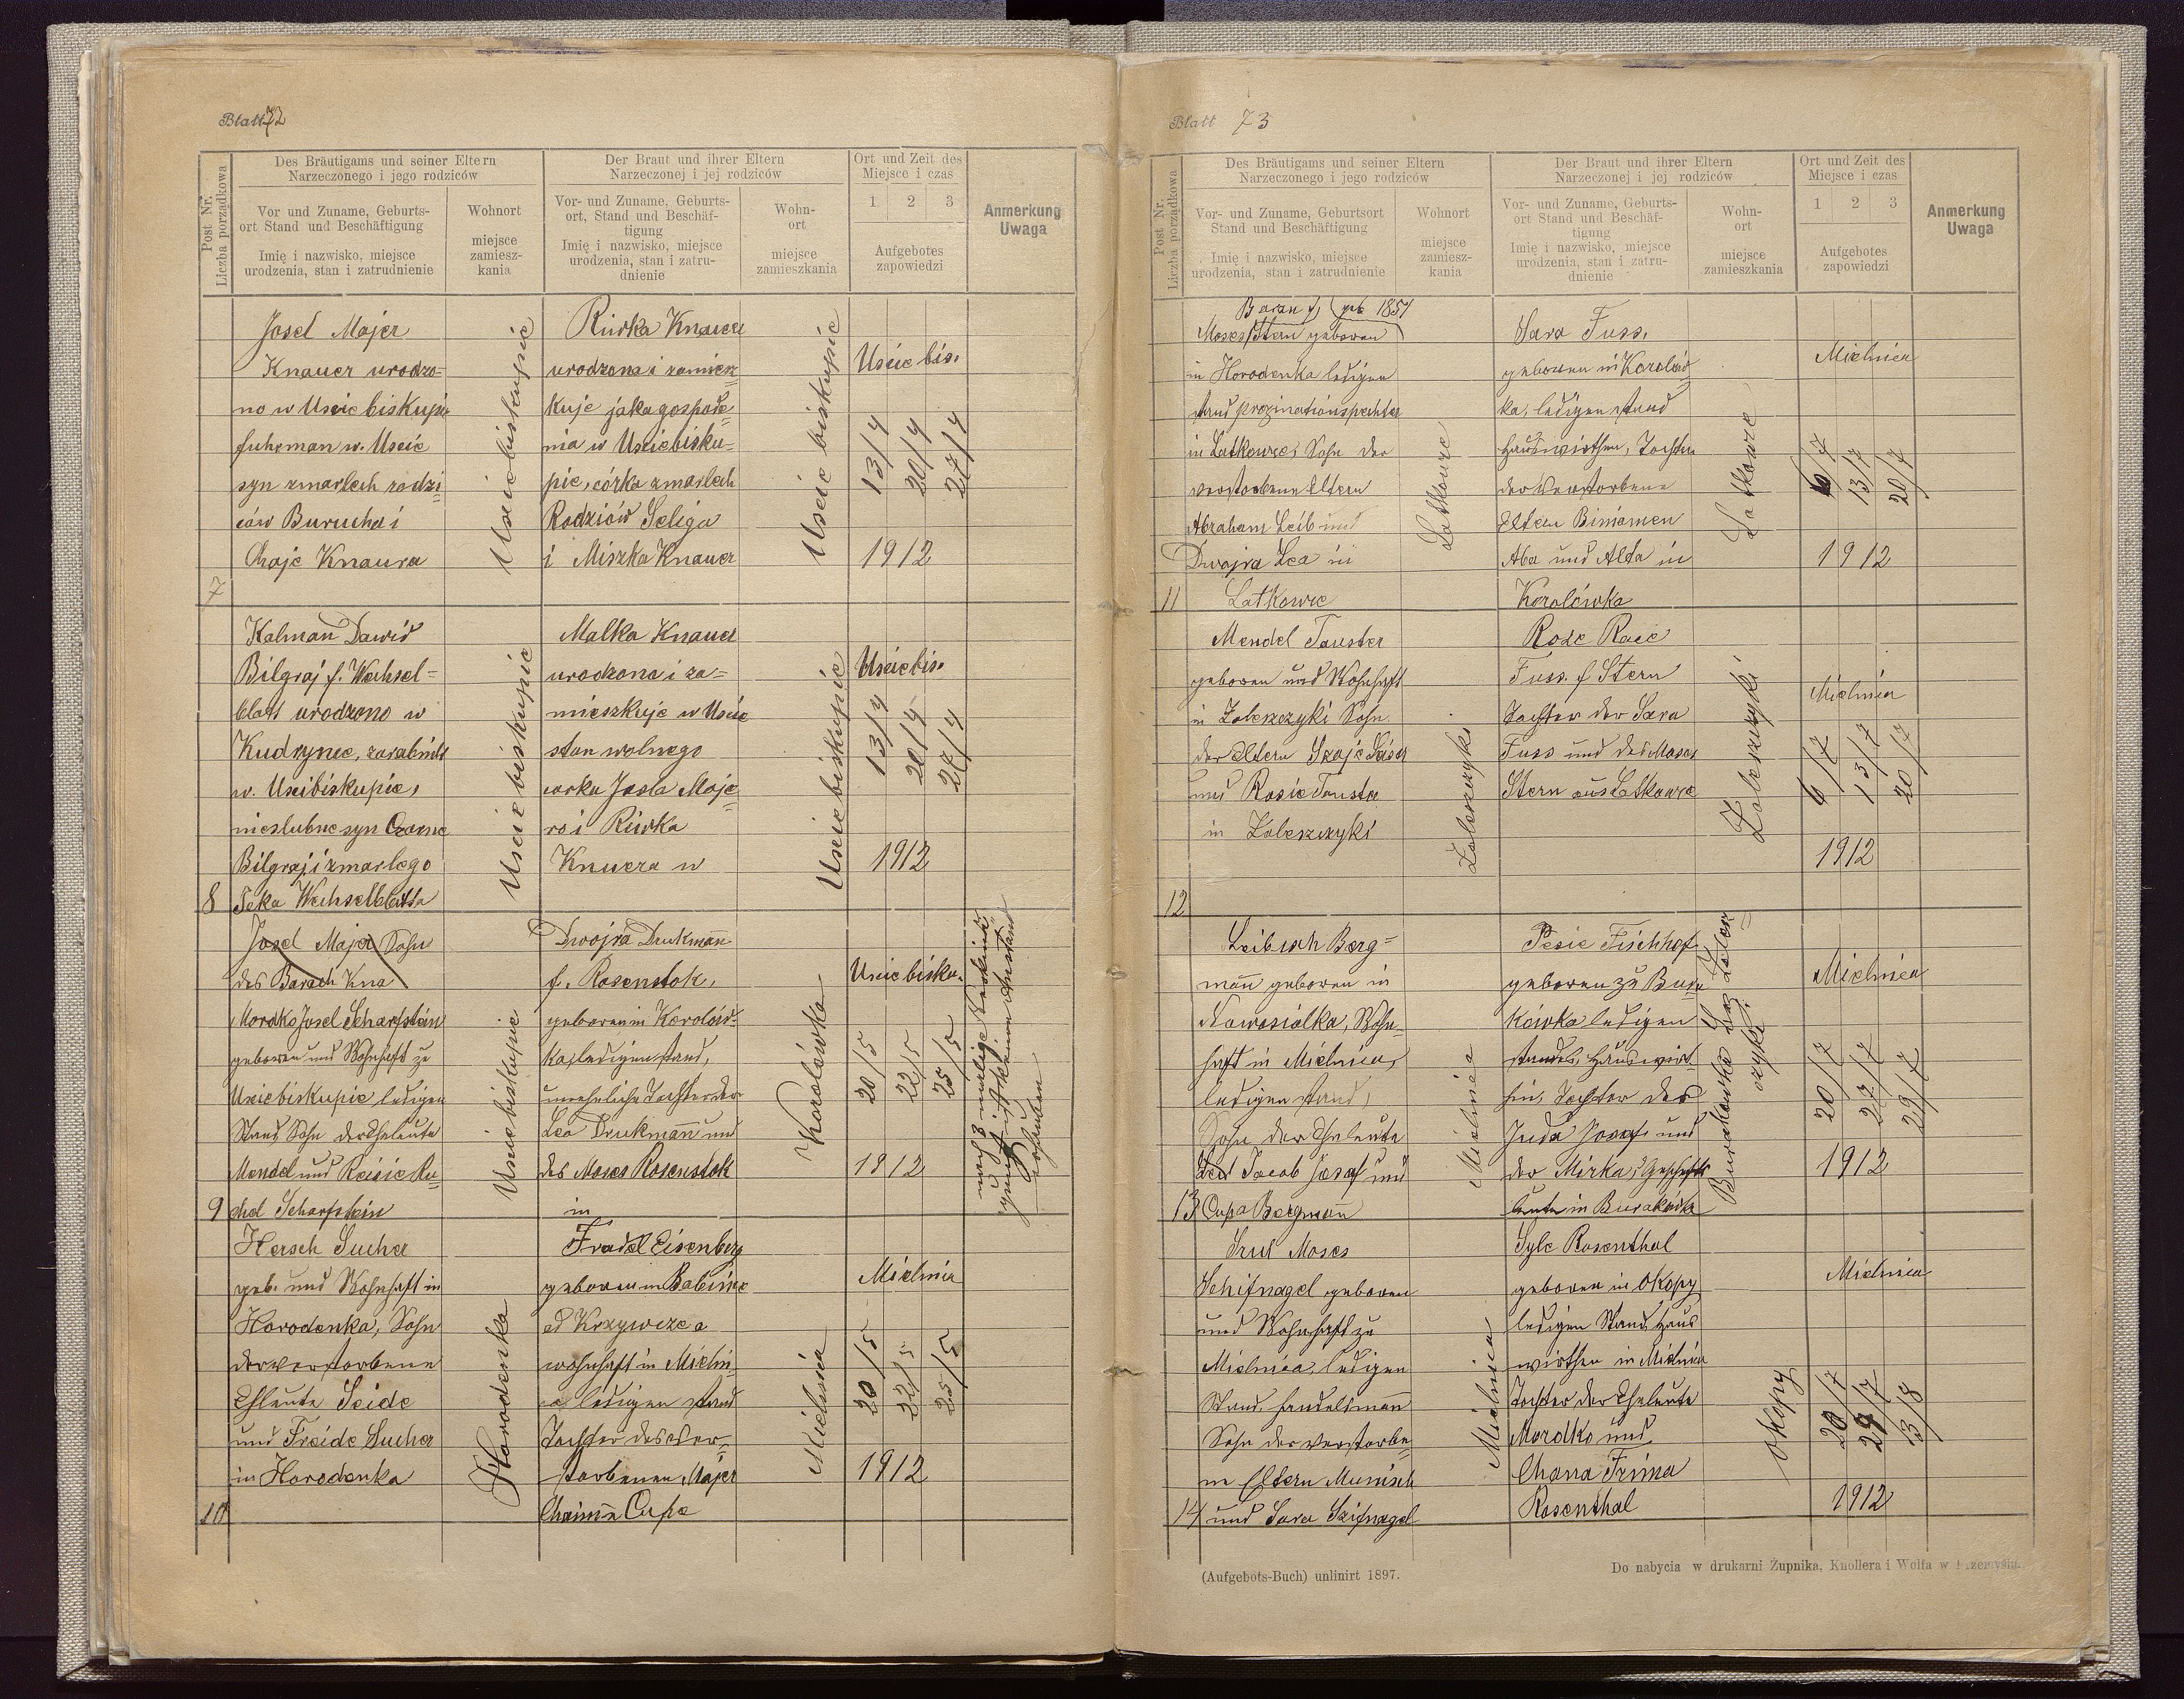 Blatt 72
Post Nr.
Liczba porządkowa
Des Bräutigams und seiner Eltern
Narzeczonego i jego rodziców
Der Braut und ihrer Eltern
Narzeczonej i jej rodziców
Ort und Zeit des
Miejsce i czas
Vor und Zuname, Geburts-
ort Stand und Beschäftigung
Imię i nazwisko, miejsce
urodzenia, stan i zatrudnienie
Wohnort
miejsce
zamiesz-
kania
Vor- und Zuname, Geburts-
ort, Stand und Beschäf-
tigung
Imię i nazwisko, miejsce
urodzenia, stan i zatru-
dnienie
Wohn-
ort
miejsce
zamieszkania
1 2 3
Aufgebotes
zapowiedzi
Anmerkung
Uwaga
7
Josel Majer
Knauer urodzo-
no w Uscie biskupie
fuhrman w. Uscie
syn zmarlech rodzi
ców Burucha i
Chaje Knaura
Uscie biskupie
Riwka Knauer
urodzona i zamiesz
kuje jako gospode
nia w Usciebisku-
pie, córka zmarlech
Rodziców Seliga
i Miszka Knauer
Uscie biskupie
Uscie bis.
13/4
20/4
27/4
1912
8
Kalman Dawid
Bilgraj f. Wechsel-
blatt urodzono w
Kudrynce, zarabnik
w. Uscibiskupie,
nieslubne syn Czarne
Bilgraj i zmarlego
Peka Wechselblatta
Uscie biskupie
Malka Knauer
urodzona i za-
mieszkuje w Uscie
stan wolnego
corka Josla Maje
ro i Riwka
Knuera w
Uscie biskupie
Usciebis.
13/4
20/4
27/4
1912
9
Josel Majer Sohn
des Barach Kna
Mordko Josel Scharfstein
geboren und Wohnhaft zu
Usciebiskupie ledigen
Stand Sohn der Eheleute
Mendel und Reisie Ru-
chel Scharfstein
Usciebiskupie
Dwojra Drukmann
f. Rosenstok,
geboren in Korolów-
ka, ledigen stand,
uneheliche Tochter der
Lea Drukmann und
des Moses Rosenstok
in
Korolówka
Usciebisku.
20/5
22/5
25/5
1912
10
Hersch Sucher
geb. und Wohnhaft in
Horodenka, Sohn
der verstorbene
Ehleute Seide
und Freide Sucher
in Horodenka
Horodenka
Fradel Eisenberg
geboren in Babince
ad Krzywcze a
wohnhaft in Mielni-
a ledigen stand
Tochter des ver-
storbenen Majer
Chaim Cupe
Mielnica
Mielnica
20/5
22/5
25/5
1912
Blatt 73
Post Nr.
Liczba porządkowa
Des Bräutigams und seiner Eltern
Narzeczonego i jego rodziców
Der Braut und ihrer Eltern
Narzeczonej i jej rodziców
Ort und Zeit des
Miejsce i czas
Vor- und Zuname, Geburtsort
Stand und Beschäftigung
Imię i nazwisko, miejsce
urodzenia, stan i zatrudnienie
Wohnort
miejsce
zamiesz-
kania
Vor- und Zuname, Geburts-
ort Stand und Beschäf-
tigung
Imię i nazwisko, miejsce
urodzenia, stan i zatru-
dnienie
Wohn-
ort
miejsce
zamieszkania
1 2 3
Aufgebotes
zapowiedzi
Anmerkung
Uwaga
11
Baran f. (geb 1851
Moses Stern geboren
in Horodenka ledigen
stand propinationspachter
in Latkowce, Sohn der
verstorbene Eltern
Abraham Leib und
Dwojra Lea in
Latkowce
Latkowce
Sara Fuss.
geboren in Korolów
ka, ledigen stand
Hauswirthin, Tochter
der verstorbene
Eltern Biniomen
Aba und Alta in
Korolówka
Latkowce
Mielnica
6/7
13/7
20/7
1912
12
Mendel Tauster
geboren und Wohnhaft
in Zaleszczyki Sohn
der Eltern Szaje Leiser
und Rosie Tauster
in Zaleszczyki
Zaleszczyki
Rode Raie
Fuss. f Stern
Tochter der Sara
Fuss und des Moses
Stern aus Latkowce
Zaleszczyki
Mielnica
6/7
13/7
20/7
1912
13
Leibisch Berg-
mann geboren in
Nowosiolka, Wohn-
haft in Mielnica,
ledigen stand,
Sohn der Eheleute
Jacob Josef und
Cupa Bergmann
Mielnica
Pesie Fischhof
geboren zu Bura
kówka ledigen
standes, Hauswirt
hin, Tochter des
Juda Josef und
der Mirka, Geschäfts
leute in Burakówka
Burakówka
Mielnica
20/7
27/7
29/7
1912
14
Srul Moses
Schifnagel geboren
und Wohnhaft zu
Mielnica, ledigen
Stand, handelsmann
Sohn der verstorbe-
ne Eltern Munisch
und Sara Szifnagel
Mielnica
Syle Rosenthal
geboren in Okopy
ledigen Stand, Haus
wirthin in Mielnica
Tochter der Eheleute
Mordko und
Chana Frima
Rosenthal
Okopy
Mielnica
20/7
29/7
3/8
1912
(Aufgebots-Buch) unlinirt 1897.
Do nabycia w drukarni Żupnika, Knollera i Wolfa w Przemyślu.